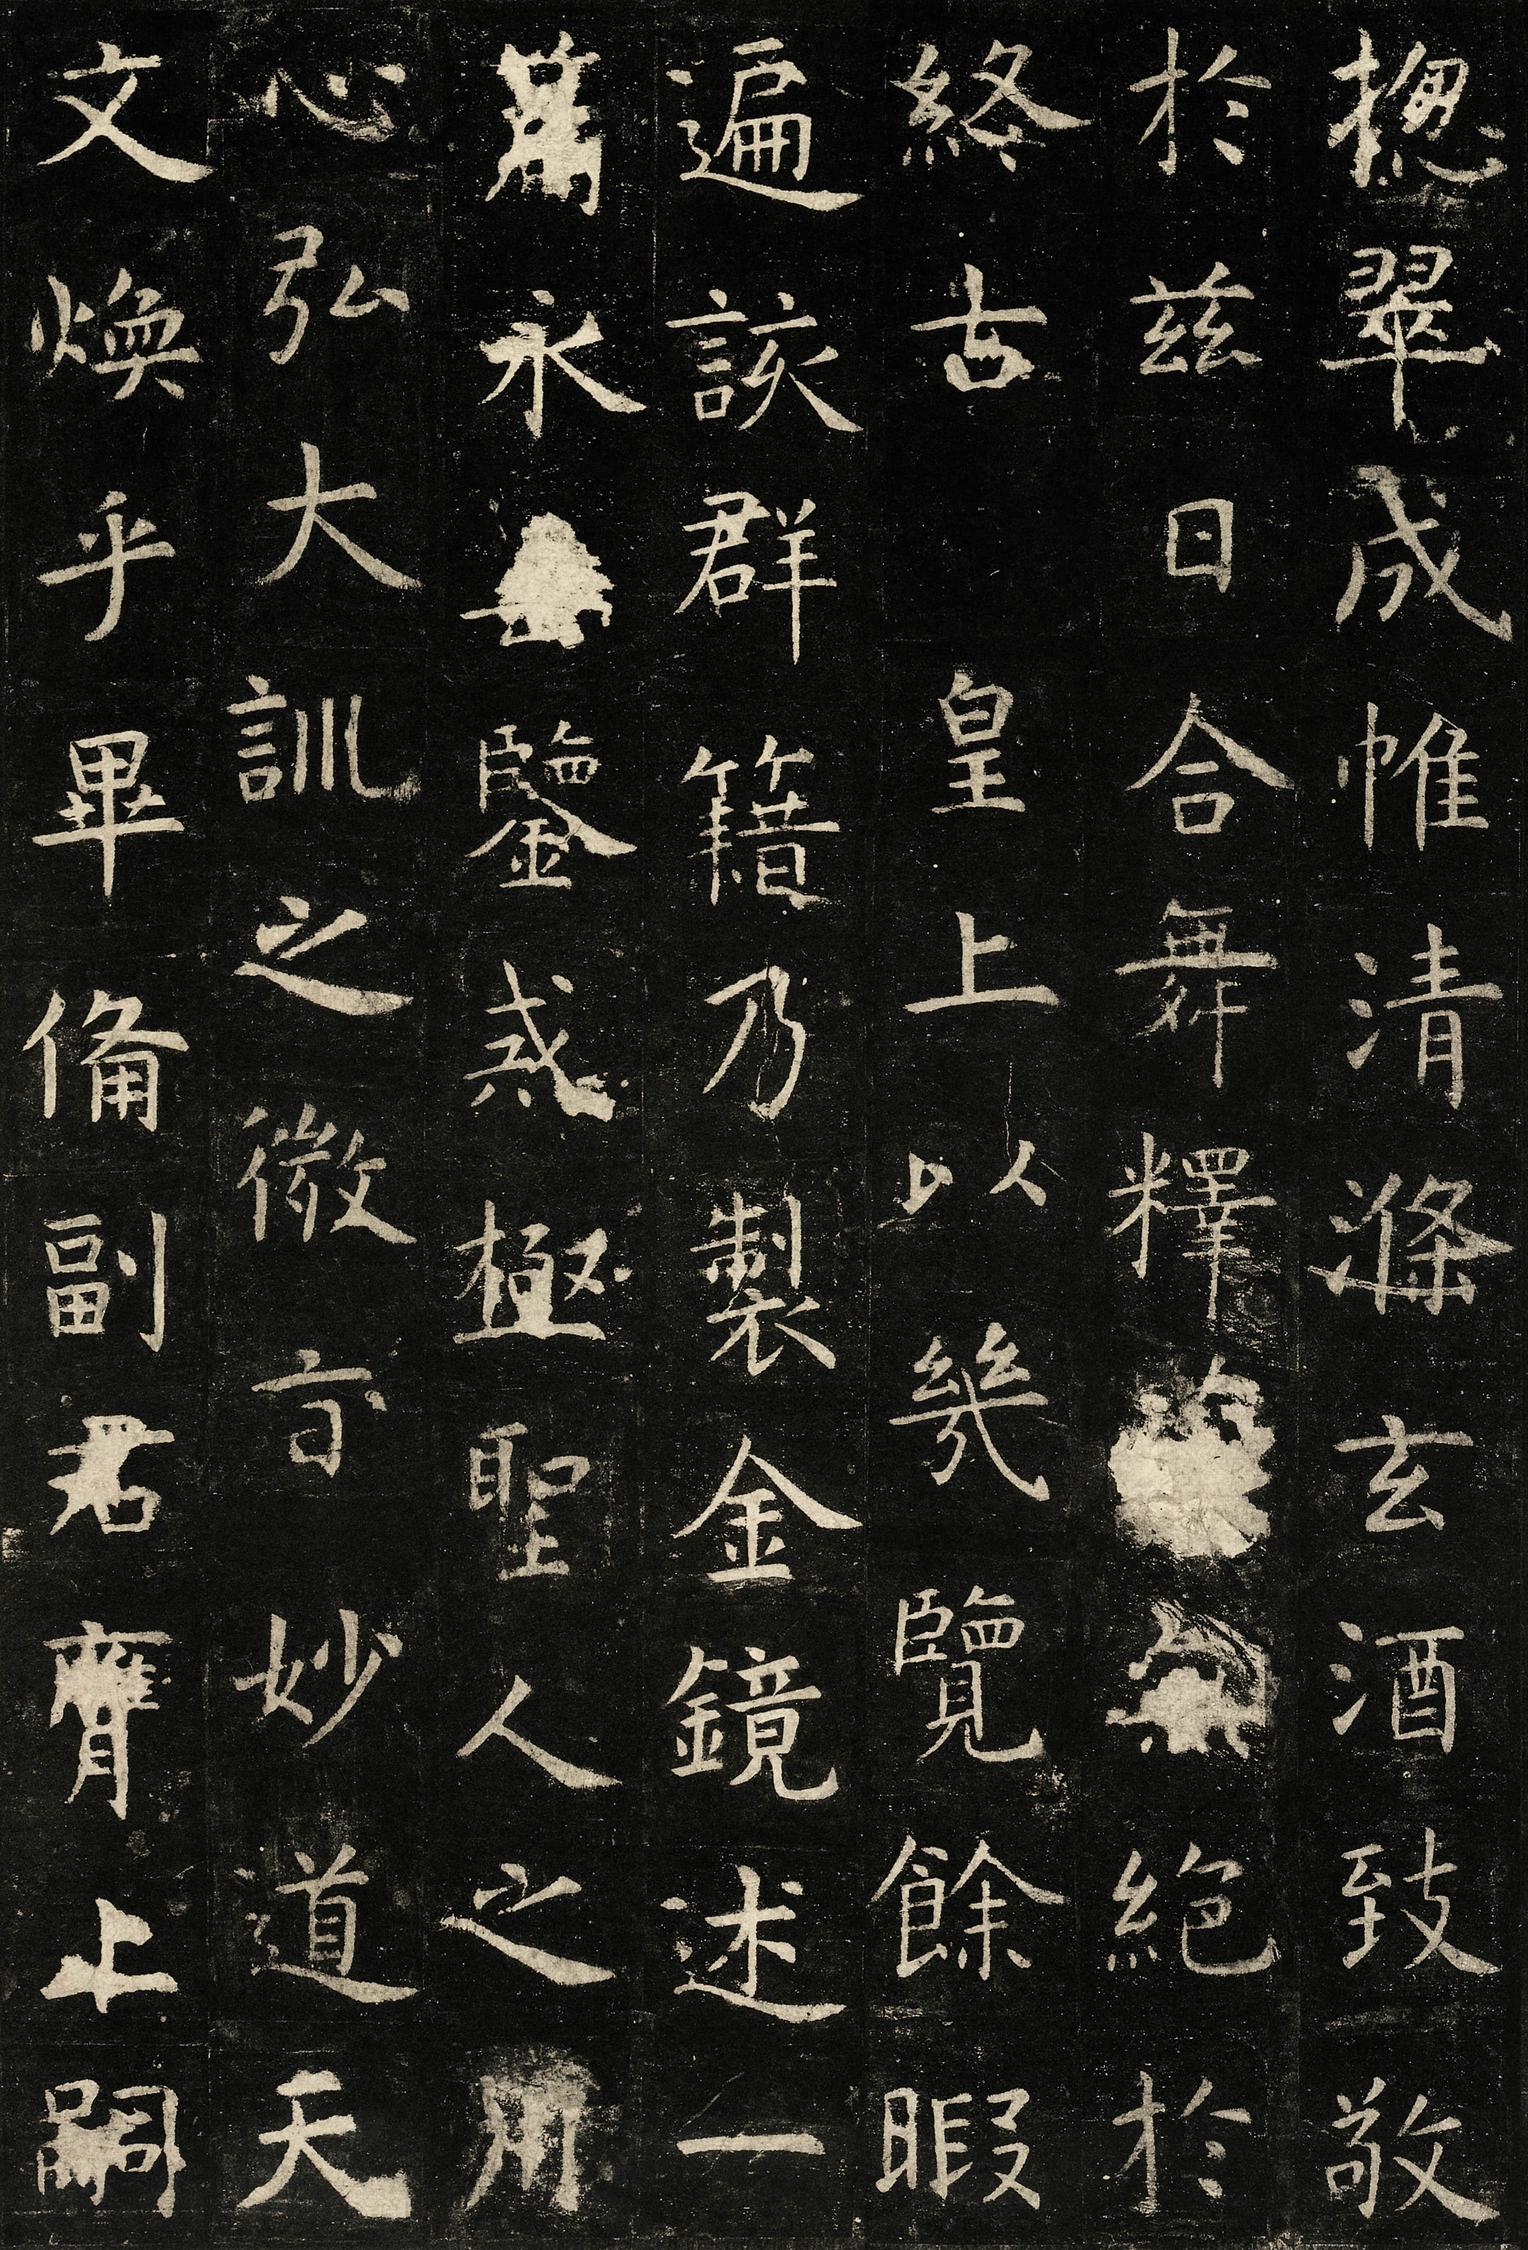 揔翠成帷清滌玄酒致敬
於茲日合舞釋絕於
終古 皇上以幾覽餘暇
遍該群籍乃製金鏡述一
篇永鑒戒極聖人之用
心弘大訓之微旨妙道天
文煥乎畢備副君膺上嗣